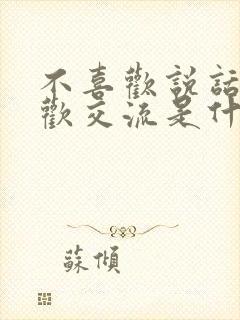 不喜歡説話
歡交流是什
蘇傾